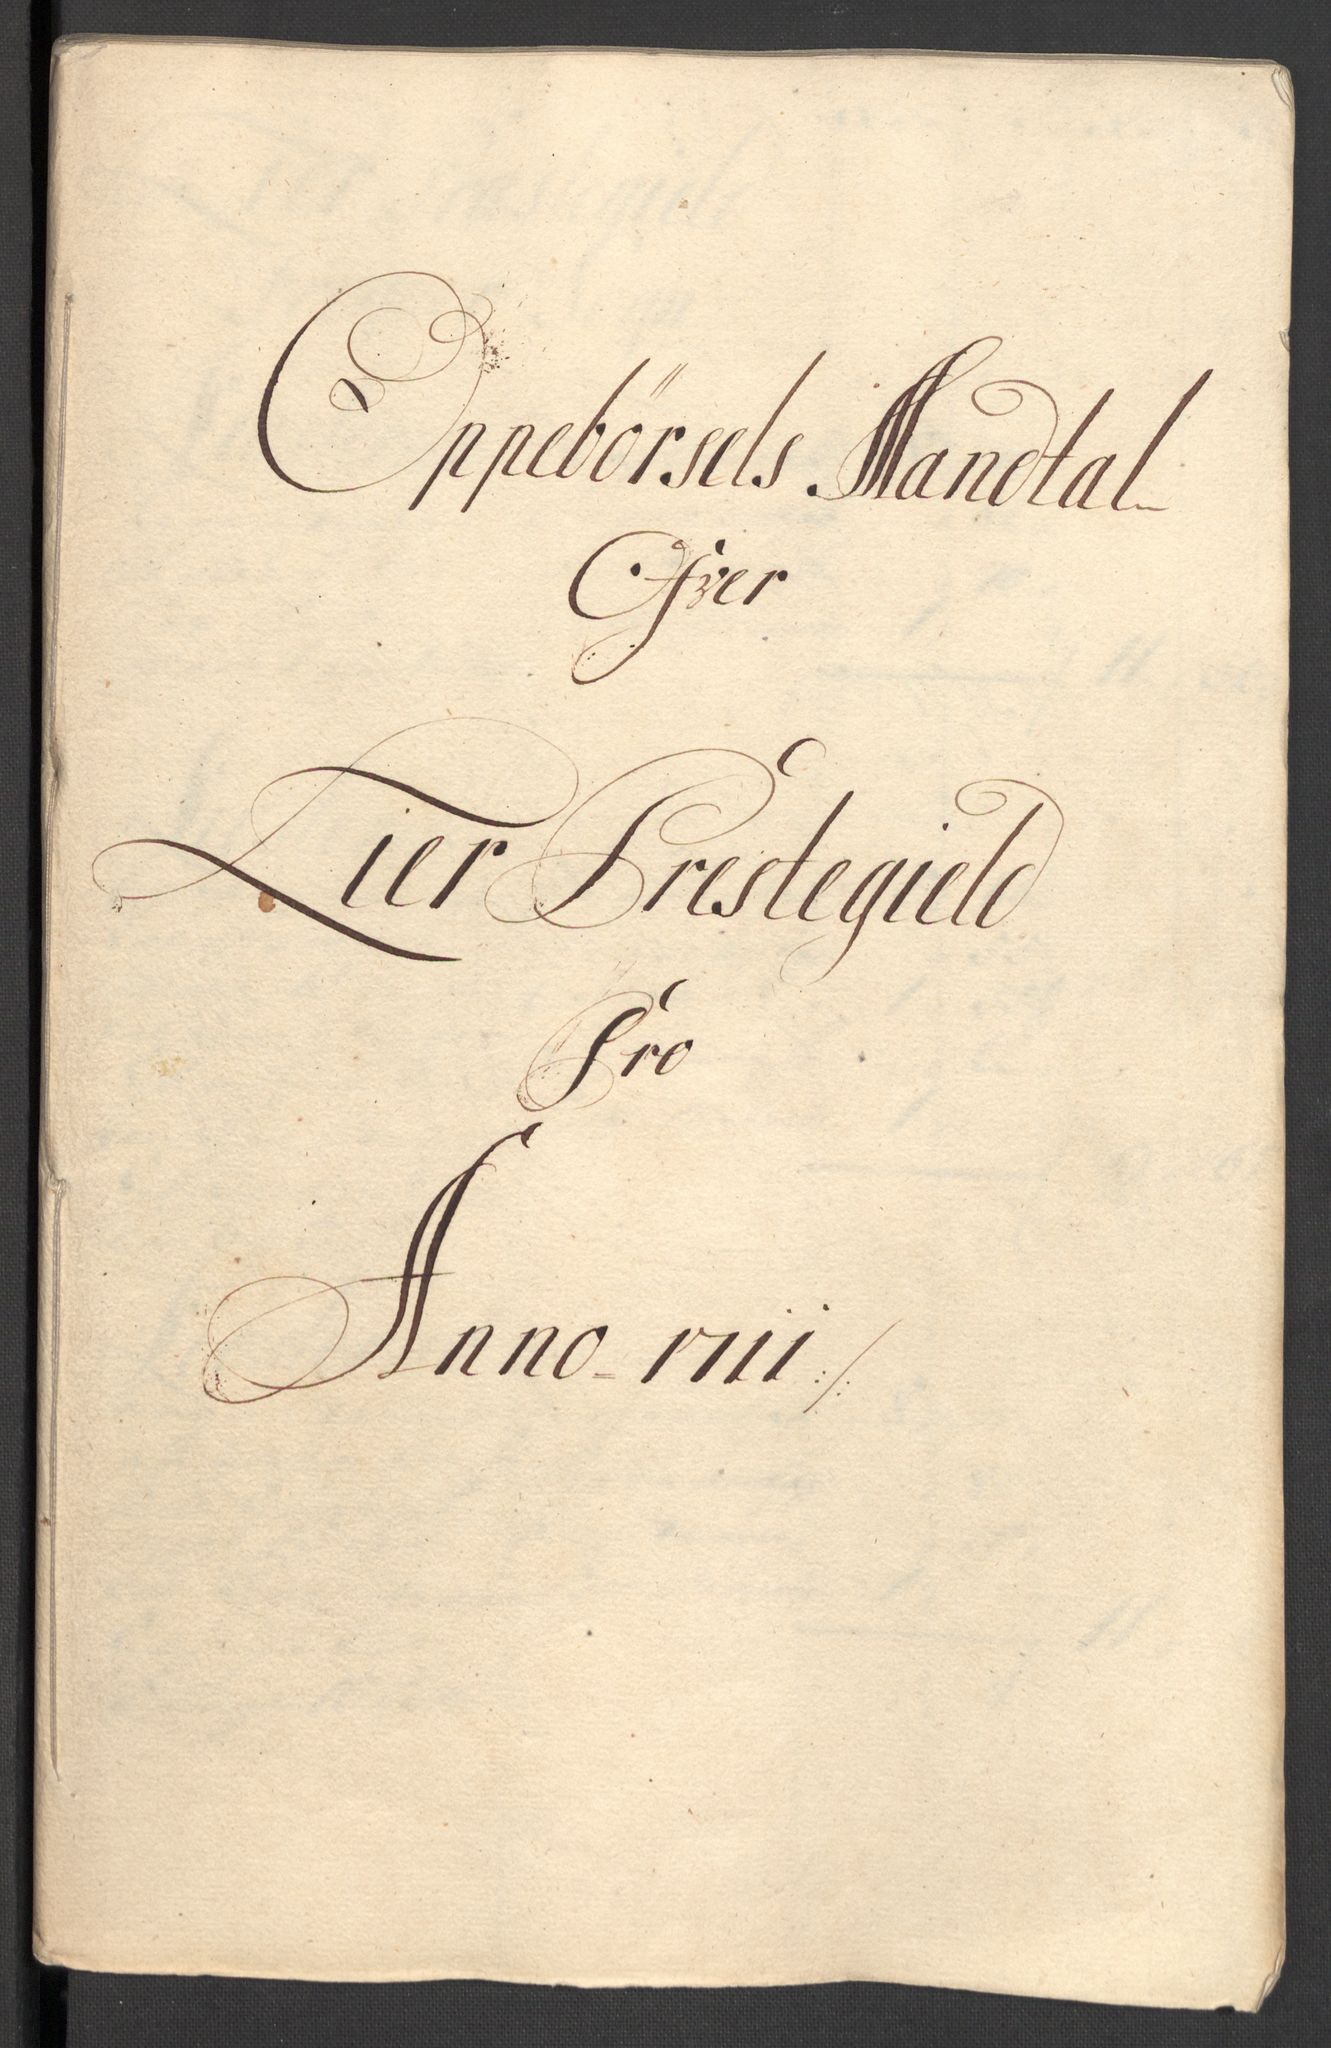 Oppebörsels Mandtal
Ofver
Lier Prestegield
Pro
Anno 1711